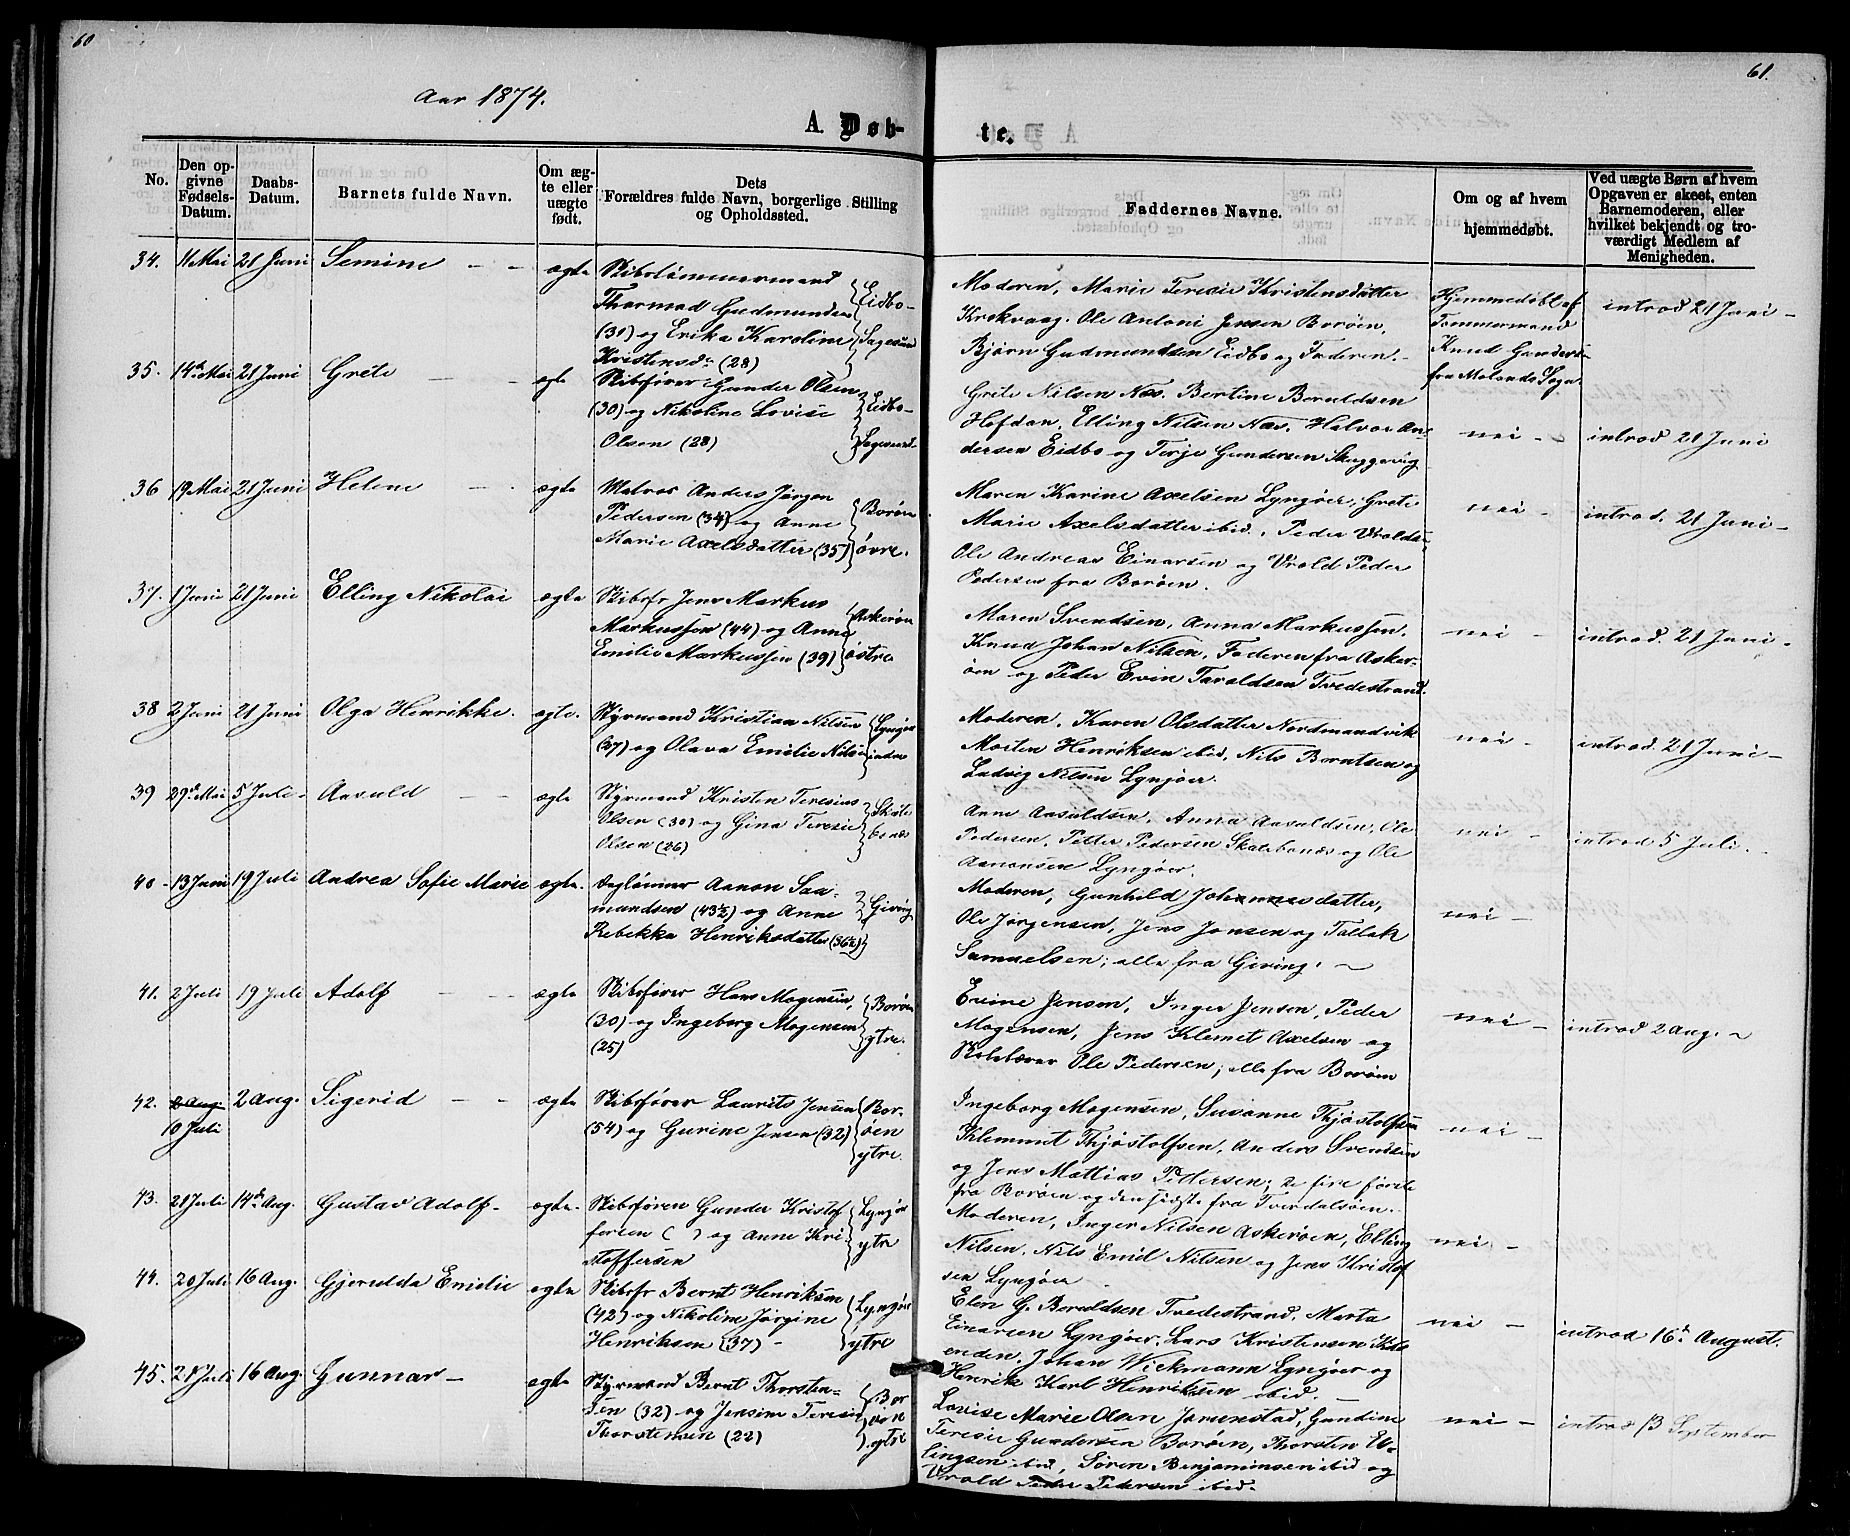 60
61.
Aar 1874.
A. Døb-
te.
No.
Den op-
givne
Fødsels-
Datum.
Daabs-
Datum.
Barnets fulde Navn.
Om æg-
te eller
uægte
født.
Dets
Forældres fulde Navn, borgerlige Stilling
og Opholdssted.
Faddernes Navne.
Om og af hvem
hjemmedøbt.
Ved uægte Børn af hvem
Opgaven er skeet, enten
Barnemoderen, eller
hvilket bekjendt og tro-
værdigt Medlem af
Menigheden.
34. 11 Mai 21 Juni Semine - - ægte
Skibstømmermand
Thormod Gudmundsen
(31) og Erika Karoline
Kristensdr (28)
Eidbo-
Sagesund
Moderen, Marie Teresie Kristensdatter
Krokvaag. Ole Antoni Jensen Borøen,
Bjørn Gudmundsen Eidbo og Faderen.
Hjemmedøbt af
Tømmermand
Knud Gunders.
fra Molands Sogn
introd 21 Juni -
35. 14de Mai 21 Juni Grete - - ægte
Skibsfører Gunder Olsen
(30) og Nikoline Lovise
Olsen (28)
Eidbo-
Sagesund
Grete Nilsen Næs. Bertine Beruldsen
Elling Nilsen Næs. Halvor An-
dersen Eidbo og Terje Gundersen Skuggevig
nei - introd 21 Juni
36 19 Mai 21 Juni Helene - - ægte
Matros Anders Jørgen
Pedersen (34) og Anne
Marie Axelsdatter (35)
Borøen
øvre.
Maren Karine Axelsen Lyngøer, Grete
Marie Axelsdatter ibid., Peder Vrolds.,
Ole Andreas Einarsen og Vrold Peder
Pedersen fra Borøen.
nei - introd. 21 Juni -
37. 1 Juni 21 Juni Elling Nikolai ægte
Skibsfr Jens Markus
Markussen (44) og Anne
Emilie Markussen (39)
Askerøen
østre
Maren Svendsen, Anna Markussen,
Knud Johan Nilsen, Faderen fra Asker-
øen og Peder Evin Taraldsen Tvedestrand.
nei - introd. 21 Juni -
38 2 Juni 21 Juni Olga Henrikke. ægte.
Styrmand Kristian Nilsen
(37) og Olava Emilie Nilsen
Lyngør
indre
Moderen, Karen Olsdatter Nordmandvik
Morten Henriksen ibid, Nils Berntsen og
Ludvig Nilsen Lyngøer.
nei - introd. 21 Juni -
39 29de Mai 5 Juli - Aasuld - - ægte
Styrmand Kristen Teresius
Olsen (30) og Gina Teresie
Olsen (26)
Skate-
bonæs
Anne Aasuldsen, Anna Aasuldsen, Ole
Pedersen, Petter Pedersen Skatebonæs og Ole
Aanonsen Lyngøer.
nei - introd 5 Juli. -
40 - 13 Juni 19 Juli Andrea Sofie Marie ægte.
Daglønner Aanon Saa-
mundsen (43½) og Anne
Rebekka Henriksdatter (36½)
Giving
Moderen, Gunhild Johannesdatter,
Ole Jørgensen, Jens Jensen og Tallak
Samuelsen; alle fra Gjeving. -
nei -
41. 2 Juli 19 Juli Adolf - - ægte
Skibsfører Hans Mogensen,
(30) og Ingeborg Mogensen
(25)
Borøen
ytre.
Evine Jensen, Inger Jensen, Peder
Mogensen, Jens Klemet Axelsen og
Skolelærer Ole Pedersen; alle fra Borøen
nei - introd 2 Aug. -
42. 2 Aug. 10 Juli 2 Aug. Sigerid - - ægte
Skibsfører Laurits Jensen
(54) og Gurine Jensen (32)
Bor-
øen
ytre.
Ingeborg Mogensen, Susanne Thjøstolfsen
Klemmet Thjøstolfsen, Anders Svendsen
og Jens Mattias Pettersen; de fire første
fra Borøen og den sidste fra Tverdalsøen.
nei -
43. 21 Juli 14de Aug. Gustav Adolf - ægte.
Skibsføren Gunder Kristof
fersen ( ) og Anne Kri
stoffersen
Lyngør
ytre
Moderen, Inger Nilsen Askerøen, Elling
Nilsen, Nils Emil Nilsen og Jens Kristof
sen Lyngøer
nei -
44. 20 Juli 16 Aug. Gjerulda Emilie ægte
Skibsfr Bernt Henriksen
(42) og Nikoline Jørgine
Henriksen (37) -
Lyngør
ytre
Elen G. Beruldsen Tvedestrand, Marta
Einarsen Lyngøer. Lars Kristensen Kil-
enden, Johan Wickmann Lyngøer og
Henrik Karl Henriksen ibid. -
nei - introd 16de August.
45. 21 Juli 16 Aug. Gunnar - ægte
Styrmand Bernt Thorsten-
sen (32) og Jensine Teresie
Thorstensen (22)
Bor
øen
ytre
Lovise Marie Olsen Jorunstad, Gundine
Teresie Gundersen Borøen, Thorsten El-
lingsen ibid, Søren Benjaminsen ibid og
Vrold Peder Pedersen ibid.
nei - introd 13 September